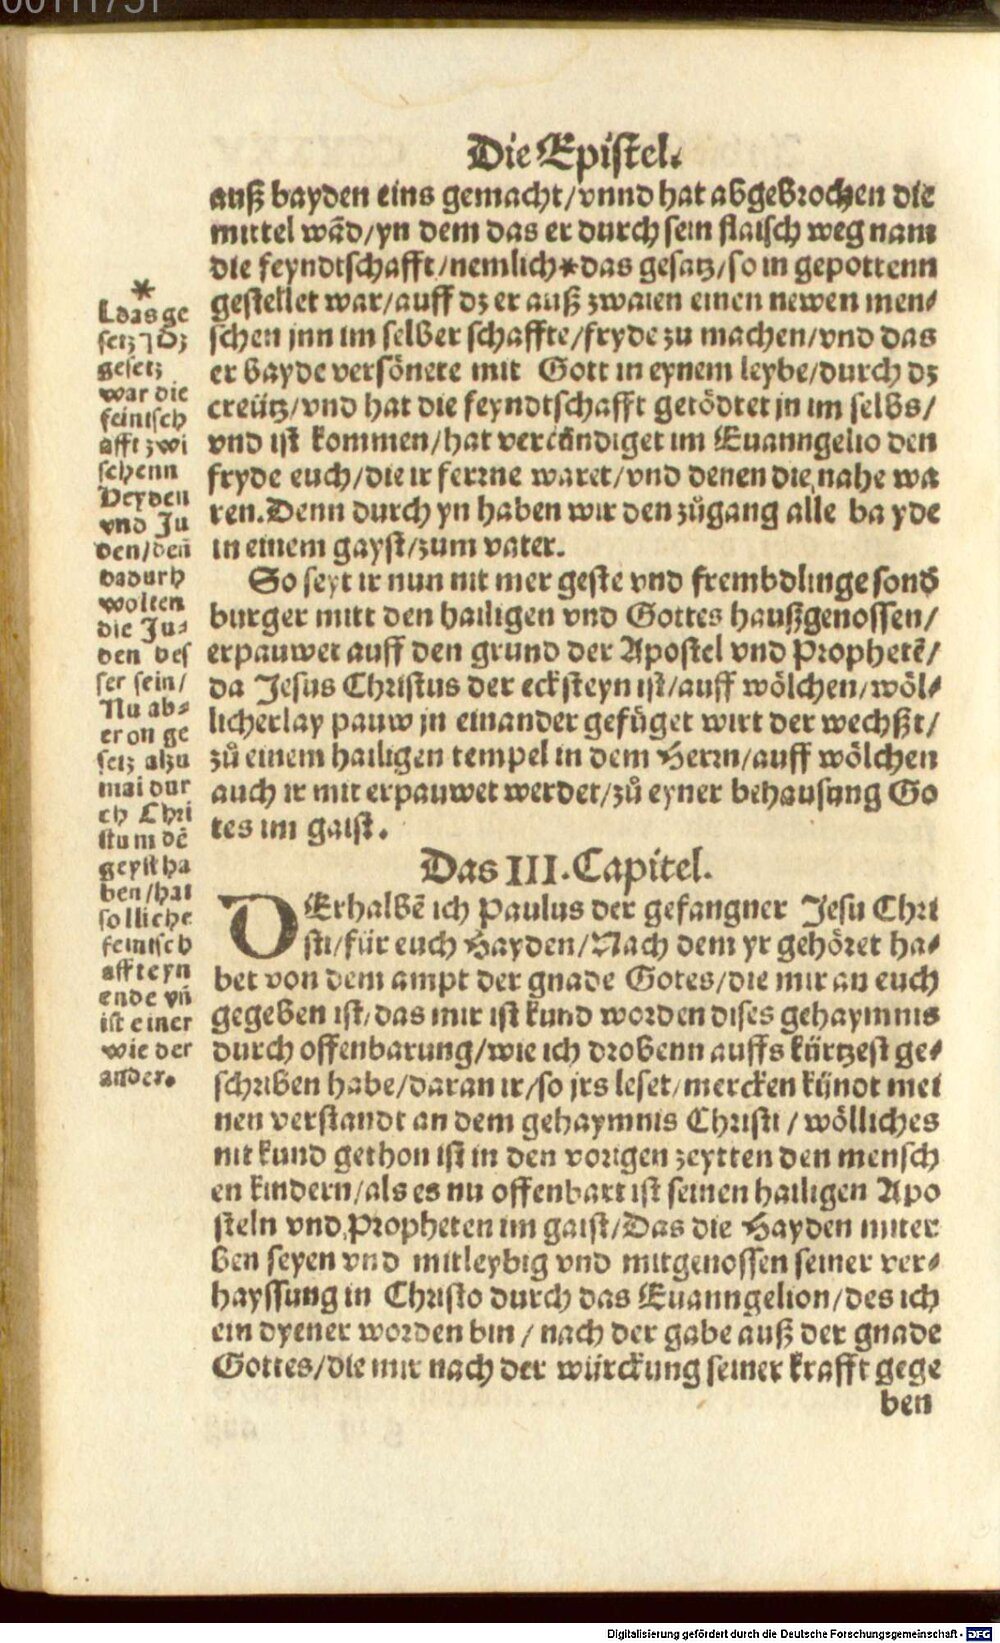 00111731
Die Epistel.
auß bayden eins gemacht/vnnd hat abgebrochen die
mittel wãd/yn dem das er durch sein flaisch weg nam
die feyndtschafft/nemlich*das gesatz/so in gepottenn
gestellet war/auff dz er auß zwaien einen newen men/
schen jnn im selber schaffte/fryde zu machen/vnd das
er bayde versönete mit Gott in eynem leybe/durch dz
creütz/vnd hat die feyndtschafft getödtet jn im selbs/
vnd ist kommen/hat verckündiget im Euanngelio den
fryde euch/die ir ferrne waret/vnd denen die nahe wa
ren.Denn durch yn haben wir den zůgang alle bayde
in einem gayst/zum vater.
So seyt ir nun nit mer geste vnd frembdlinge sond
burger mitt den hailigen vnd Gottes haußgenossen/
erpauwet auff den grund der Apostel vnd Prophetẽ/
da Jesus Christus der ecksteyn ist/auff wölchen/wöl/
licherlay pauw jn einander gefüget wirt der wechßt/
zů einem hailigen tempel in dem Herrn/auff wölchen
auch ir mit erpauwet werdet/zů eyner behausung Go
tes im gaist.
*
Ldas ge
setz
gesetz
war die
feintsch
afft zwi
schenn
Heyden
vnd Ju
den/deñ
dadurh
wolten
die Ju⸗
den bes
ser sein/
Nu ab⸗
er on ge
setz alzu
mal dur
ch Chri
stum dẽ
geyst ha
ben/hat
solliche
feintsch
afft eyn
ende vñ
ist einer
wie der
ander.
Das III.Capitel.
DErhalbẽ ich Paulus der gefangner Jesu Chri
sti/für euch Hayden/Nach dem yr gehöret ha⸗
bet von dem ampt der gnade Gotes/die mir an euch
gegeben ist/das mir ist kund worden dises gehaymnis
durch offenbarung/wie ich drobenn auffs kürtzest ge⸗
schriben habe/daran ir/so jrs leset/mercken künot mei
nen verstandt an dem gehaymnis Christi/wölliches
nit kund gethon ist in den vorigen zeytten den mensch
en kindern/als es nu offenbart ist seinen hailigen Apo
steln vnd Propheten im gaist/Das die Hayden miter
ben seyen vnd mitleybig vnd mitgenossen seiner ver⸗
hayssung in Christo durch das Euanngelion/des ich
ein dyener worden bin/nach der gabe auß der gnade
Gottes/die mir nach der würckung seiner krafft gege
ben
Digitalisierung gefördert durch die Deutsche Forschungsgemeinschaft - DFG